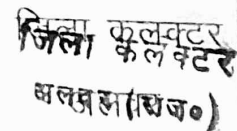 जिला कलक्टर
जिला कलक्टर
(राज०)